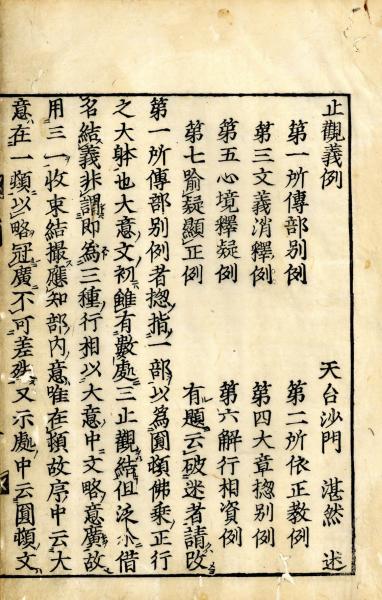 止觀義例　天台沙門　湛然　述
第一所傳部別例　第二所依正教例
第三文義消釋例　第四大章揔別例
第五心境釋疑例　第六解行相資例
第七喻疑顯正例　有題云破迷者請改
第一所傳部別例者揔指一部以為圓頓佛乘正行
之大躰也大意文初雖有數處三止觀結但泛尒借
名結義非謂即為三種行相以大意中文略意廣故
用三一收束結撮應知部內意唯在頓故序中云大
意在一頓以略冠廣不可差殊又示處中云圓頓文